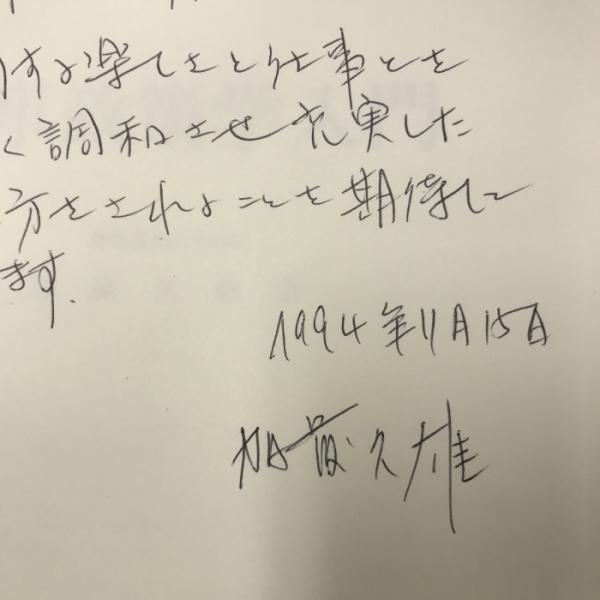 する楽しさと仕事とを
く調和させ充実した
方をされることを期待して
ます.
1994年11月15日
加藤久雄